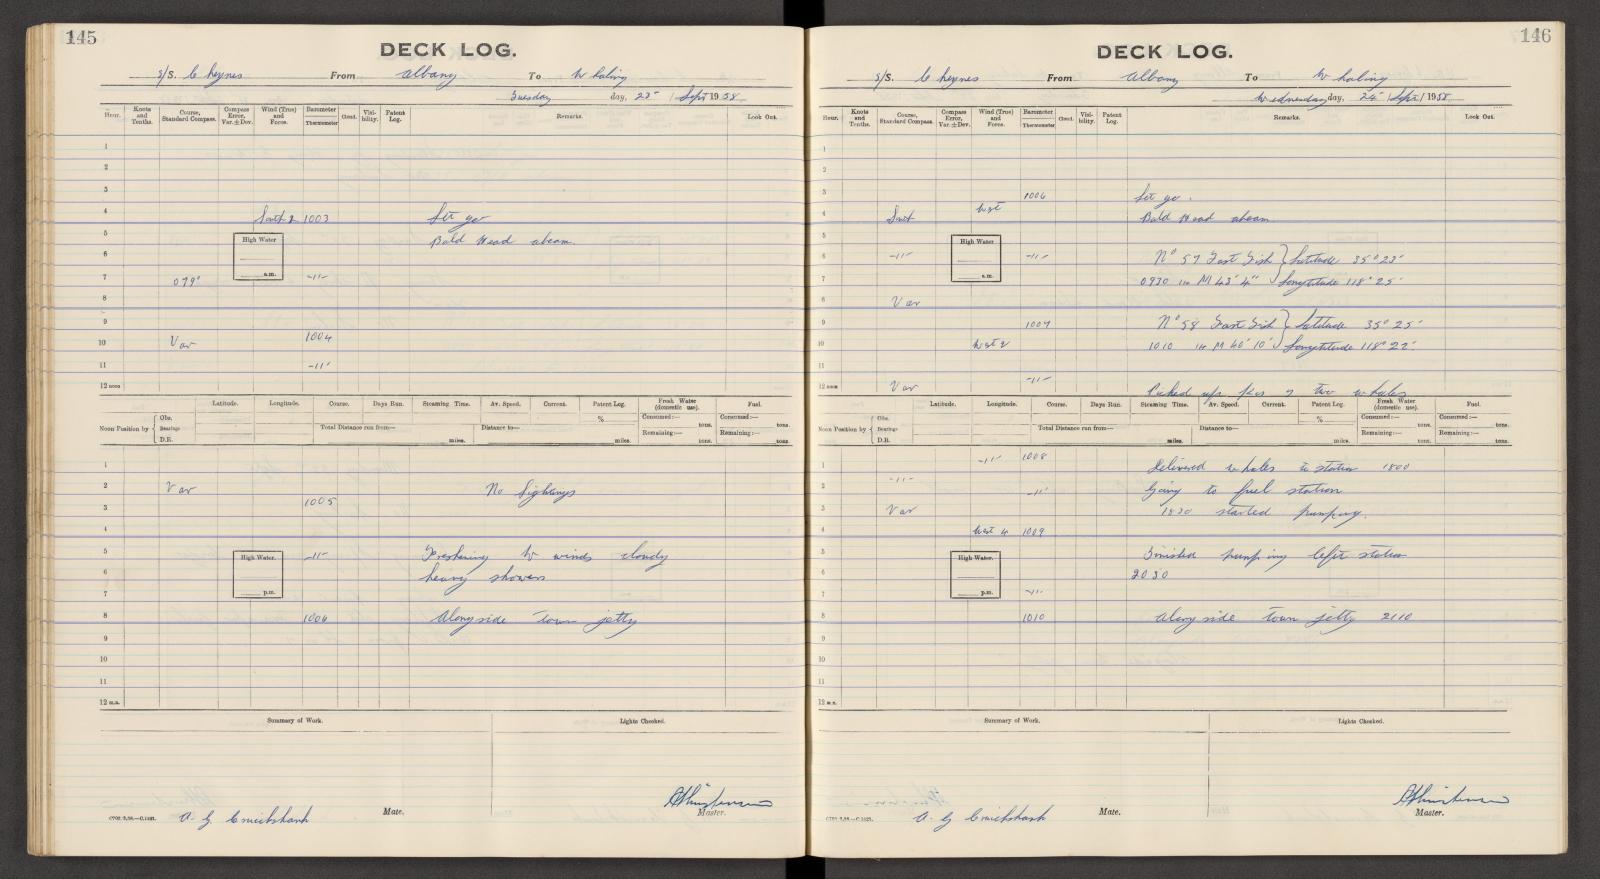 145
DECK LOG.
S/S. Cheynes From Albany To Whaling
Tuesday day, 23rd / Sept 1958
Hour. Knots and Tenths. Course, Standard Compass. Compass Error, Var. ± Dev. Wind (True) and Force. Barometer Thermometer Cloud. Visibility. Patent Log. Remarks. Look Out.
1
2
3
4 South 2 1003 Set go
5 Bald Head abeam.
High Water
6
a.m.
7 079° -11-
8
9
10 Var 1004
11 -11-
12 noon
Latitude. Longitude. Course. Days Run. Steaming Time. Av. Speed. Current. Patent Log. Fresh Water (domestic use). Fuel.
Noon Position by { Obs. Bearings D.R.
% Consumed:— tons. Consumed:— tons.
Total Distance run from— miles. Distance to— miles. Remaining:— tons. Remaining:— tons.
1
2 Var No Sightings
3 1005
4
5 -11- Freshening W winds cloudy
High Water.
6 heavy showers
7 p.m.
8 1006 Alongside town jetty
9
10
11
12 m.n.
Summary of Work. Lights Checked.
A. G. Cruickshank Mate. Master.
146
DECK LOG.
S/S. Cheynes From Albany To Whaling
Wednesday day, 24th / Sept / 1958
Hour. Knots and Tenths. Course, Standard Compass. Compass Error, Var. ± Dev. Wind (True) and Force. Barometer Thermometer Cloud. Visibility. Patent Log. Remarks. Look Out.
1
2
3 1006 Set go.
4 South West Bald Head abeam
5
High Water
6 -11- -11- No 57 Fast Fish } Latitude 35° 23'
a.m.
7 0930 in M 43' 4" Longtitude 118° 25'
8 Var
9 1007 No 58 Fast Fish } Latitude 35° 25'
10 West 2 1010 in M 40' 10" Longtitude 118° 22'
11
12 noon Var -11- Picked up pos of two whales
Latitude. Longitude. Course. Days Run. Steaming Time. Av. Speed. Current. Patent Log. Fresh Water (domestic use). Fuel.
Noon Position by { Obs. Bearings D.R.
% Consumed:— tons. Consumed:— tons.
Total Distance run from— miles. Distance to— miles. Remaining:— tons. Remaining:— tons.
1 -11- 1008 Delivered whales to station 1800
2 -11- -11- Going to fuel station
3 Var 1830 started pumping.
4 West 4 1009
5 Finished pumping left station
High Water.
6 2030
7 p.m. -11-
8 1010 Alongside town jetty 2110
9
10
11
12 m.n.
Summary of Work. Lights Checked.
A. G. Cruickshank Mate. Master.